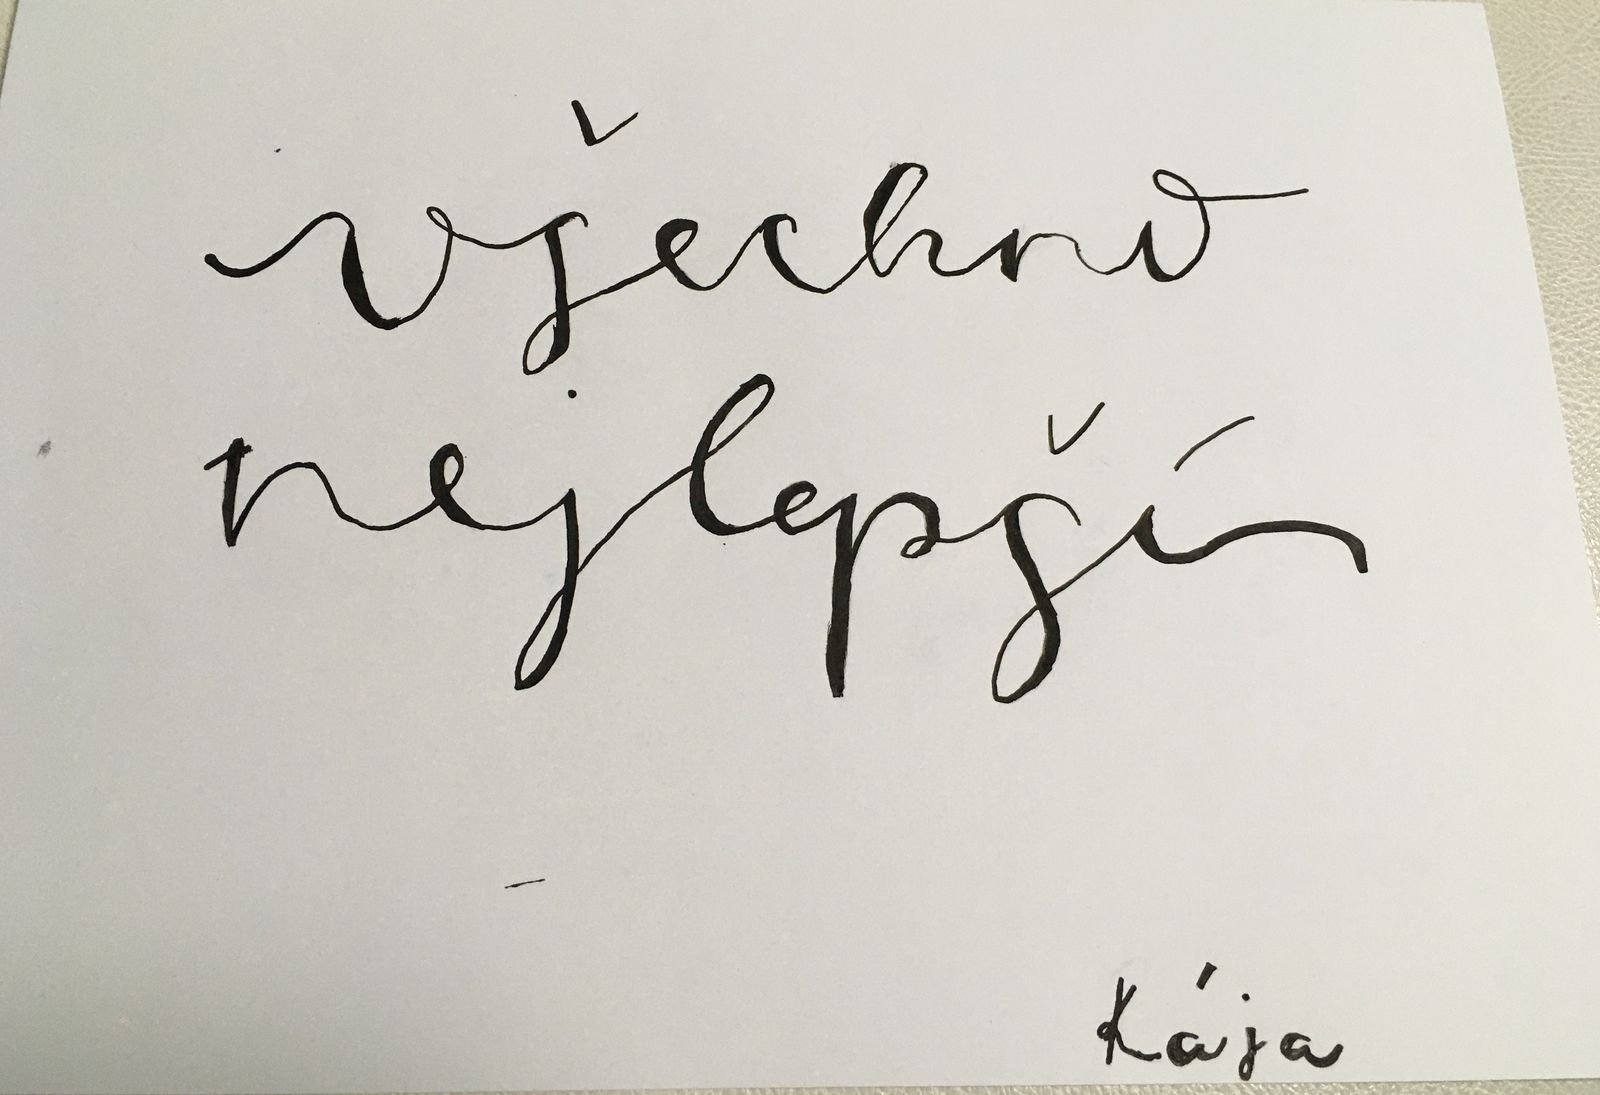 všechno
nejlepší
Kája